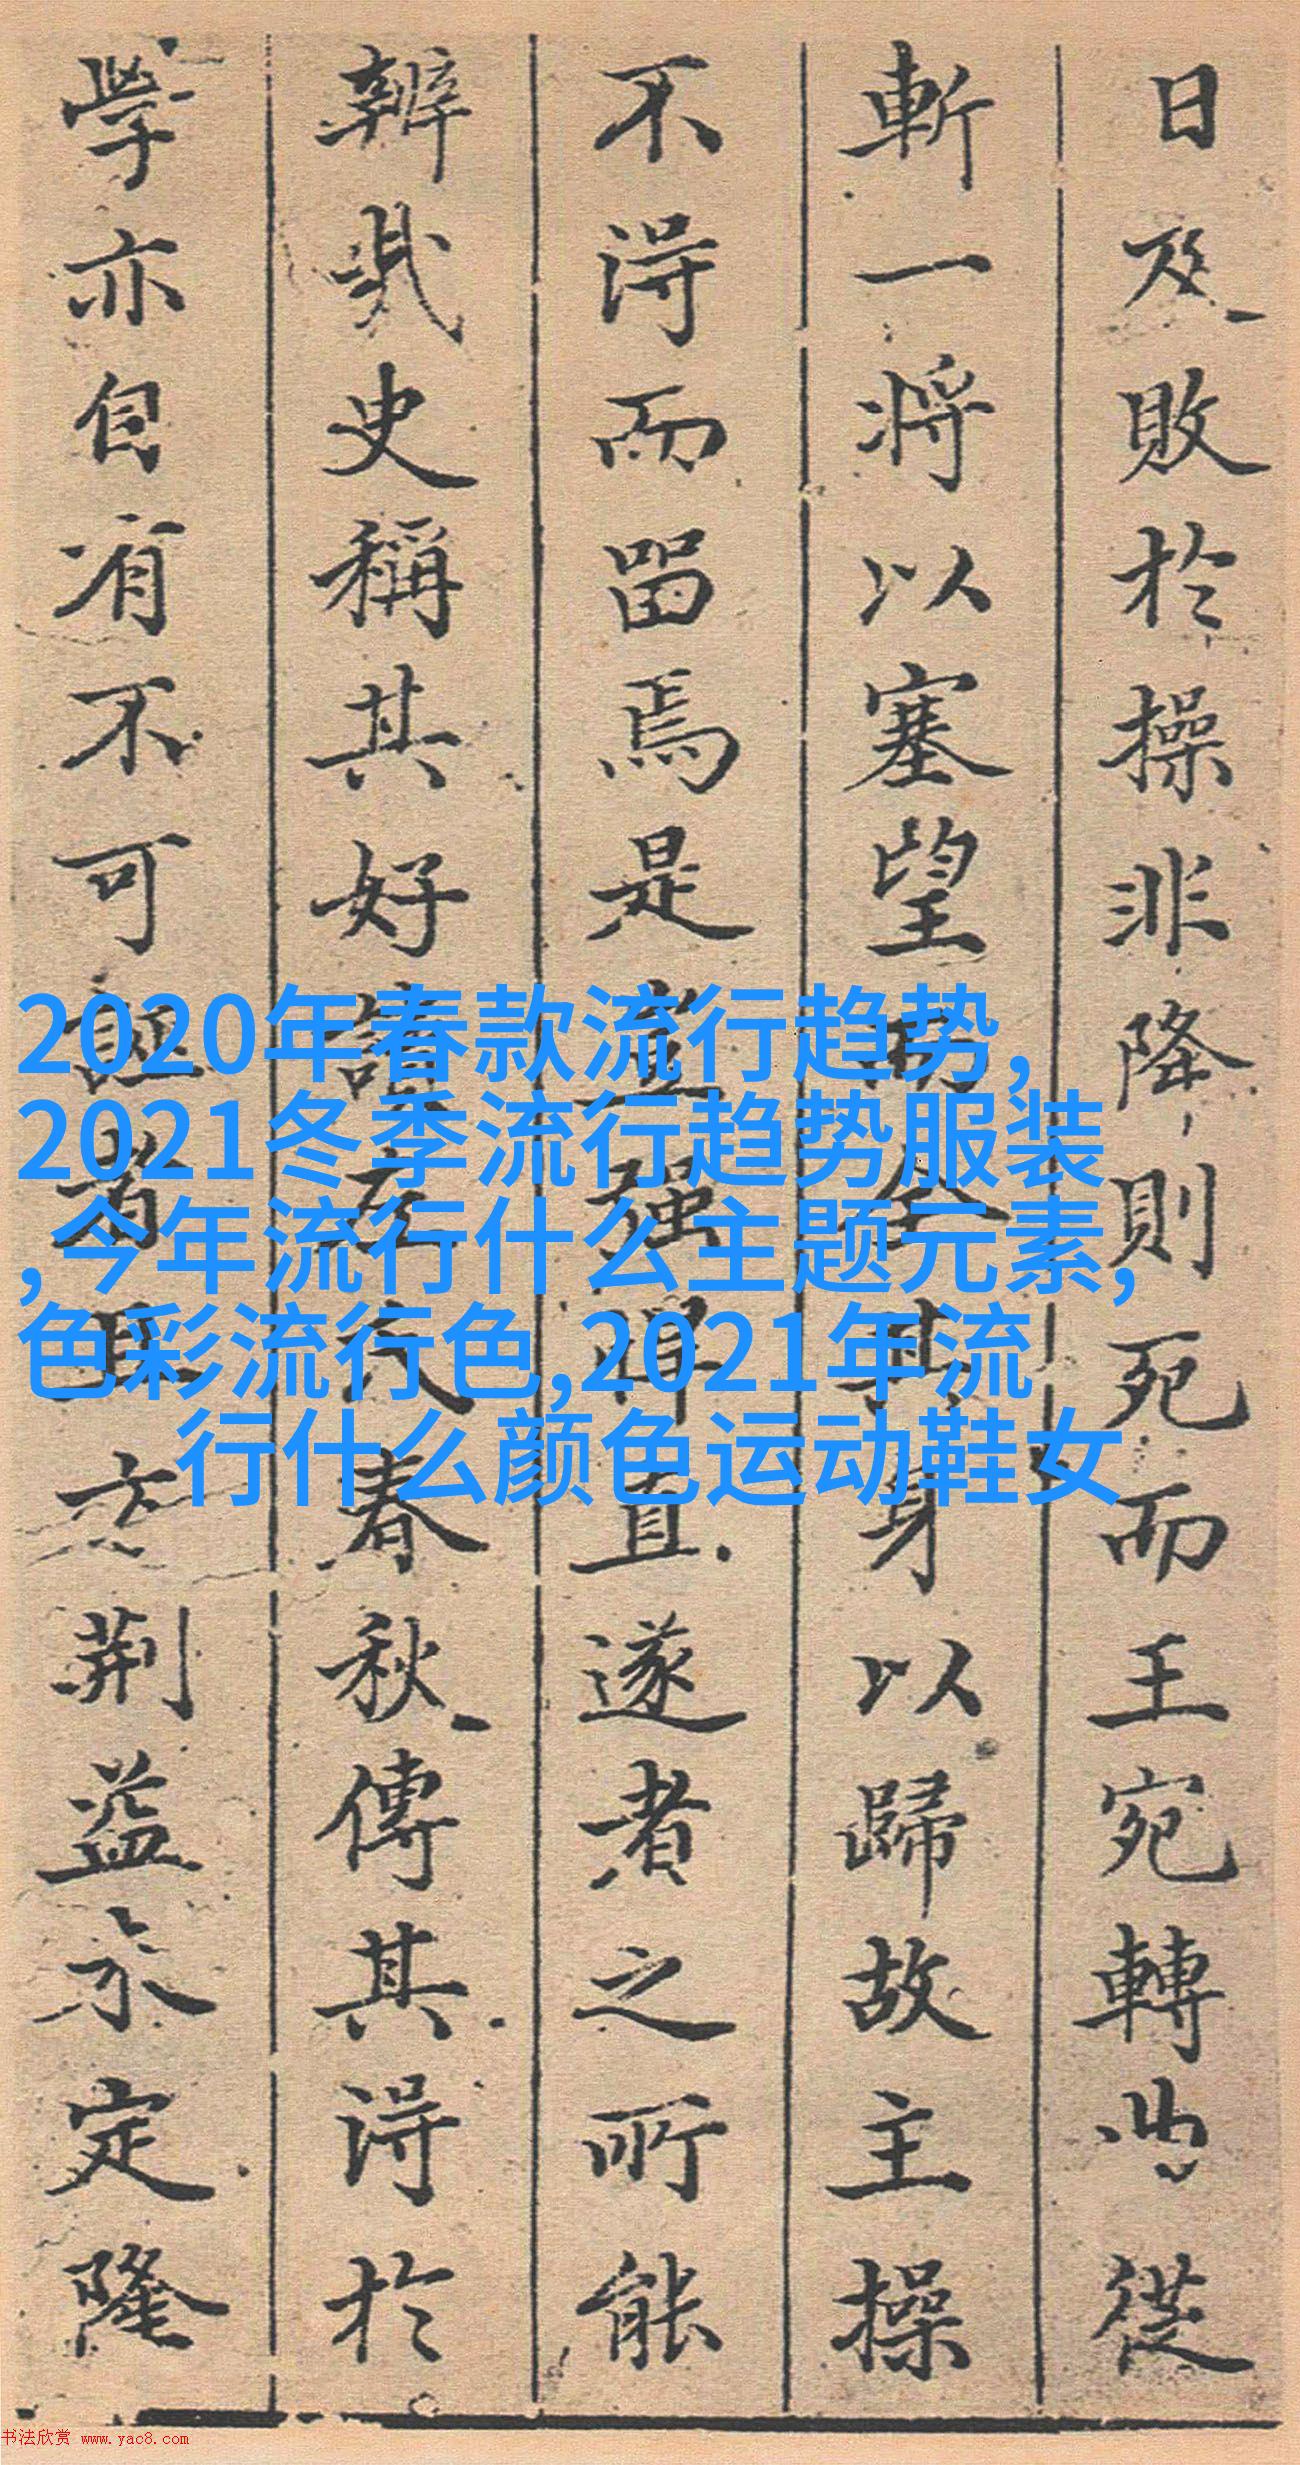 日及敗於操非降則死而王宛轉曲從
斬一將以塞望而全其身以歸故主操
不得而留焉是豈强悍直遂者之所能
辨哉史稱其好讀左氏春秋傳其得於
學亦自有不可誣者且方荊益未定隆
2020年春款流行趋势,
2021冬季流行趋势服装
,今年流行什么主题元素,
色彩流行色,2021年流
行什么颜色运动鞋女
书法欣赏 www.yac8.com